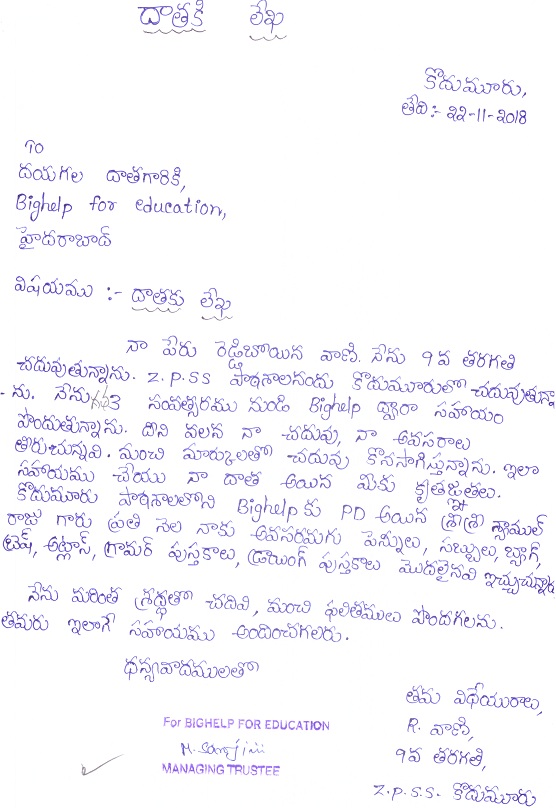 దాతకి లేఖ
కొదుమూరు,
తేది:- 22-11-2018
To
దయగల దాతగారికి,
Bighelp for education,
హైదరాబాద్
విషయము :- దాతకు లేఖ
నా పేరు రెడ్డిబోయిన వాణి. నేను 9వ తరగతి
చదువుతున్నాను. Z.P.SS పాఠశాలనందు కొదుమూరులో చదువుతున్నా
-ను. నేను 3 సంవత్సరము నుండి Bighelp ద్వారా సహాయం
పొందుతున్నాను. దీని వలన నా చదువు, నా అవసరాలు
తీరుచున్నవి. మంచి మార్కులతో చదువు కొనసాగిస్తున్నాను. ఇలా
సహాయము చేయు నా దాత అయిన మీకు కృతజ్ఞతలు.
కొదుమూరు పాఠశాలలోని Bighelp కు PD అయిన శ్రీ శ్రీ శ్యాముల్
రాజు గారు ప్రతి నెల నాకు అవసరమగు పెన్నులు, సబ్బులు, బ్యాగ్,
బ్రష్, అట్లాస్, గ్రామర్ పుస్తకాలు, డ్రాయింగ్ పుస్తకాలు మొదలైనవి ఇచ్చుచున్నారు
నేను మరింత శ్రద్ధతో చదివి, మంచి ఫలితములు పొందగలను.
తమరు ఇలాగే సహాయము అందించగలరు.
ధన్యవాదములతో
తమ విధేయురాలు,
R. వాణి,
9వ తరగతి,
Z.P.S.S. కొదుమూరు
For BIGHELP FOR EDUCATION
MANAGING TRUSTEE